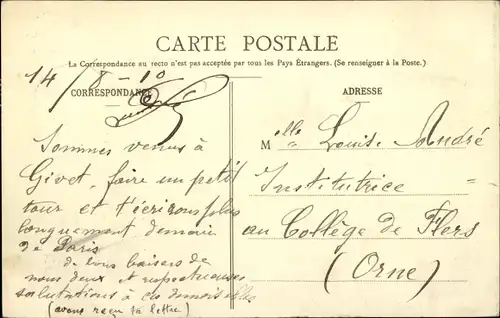 CARTE POSTALE
La Correspondance au recto n'est pas acceptée par tous les Pays Étrangers. (Se renseigner à la Poste.)
14/8-10
CORRESPONDANCE
ADRESSE
Sommes venus à
Givet, faire un petit
tour et t'écrirons plus
longuement demain
de Paris
de bons baisers de
nous deux et respectueuses
salutations à ces demoiselles
(avons reçu ta lettre)
Melle Louise André
Institutrice
au Collège de Flers
(Orne)